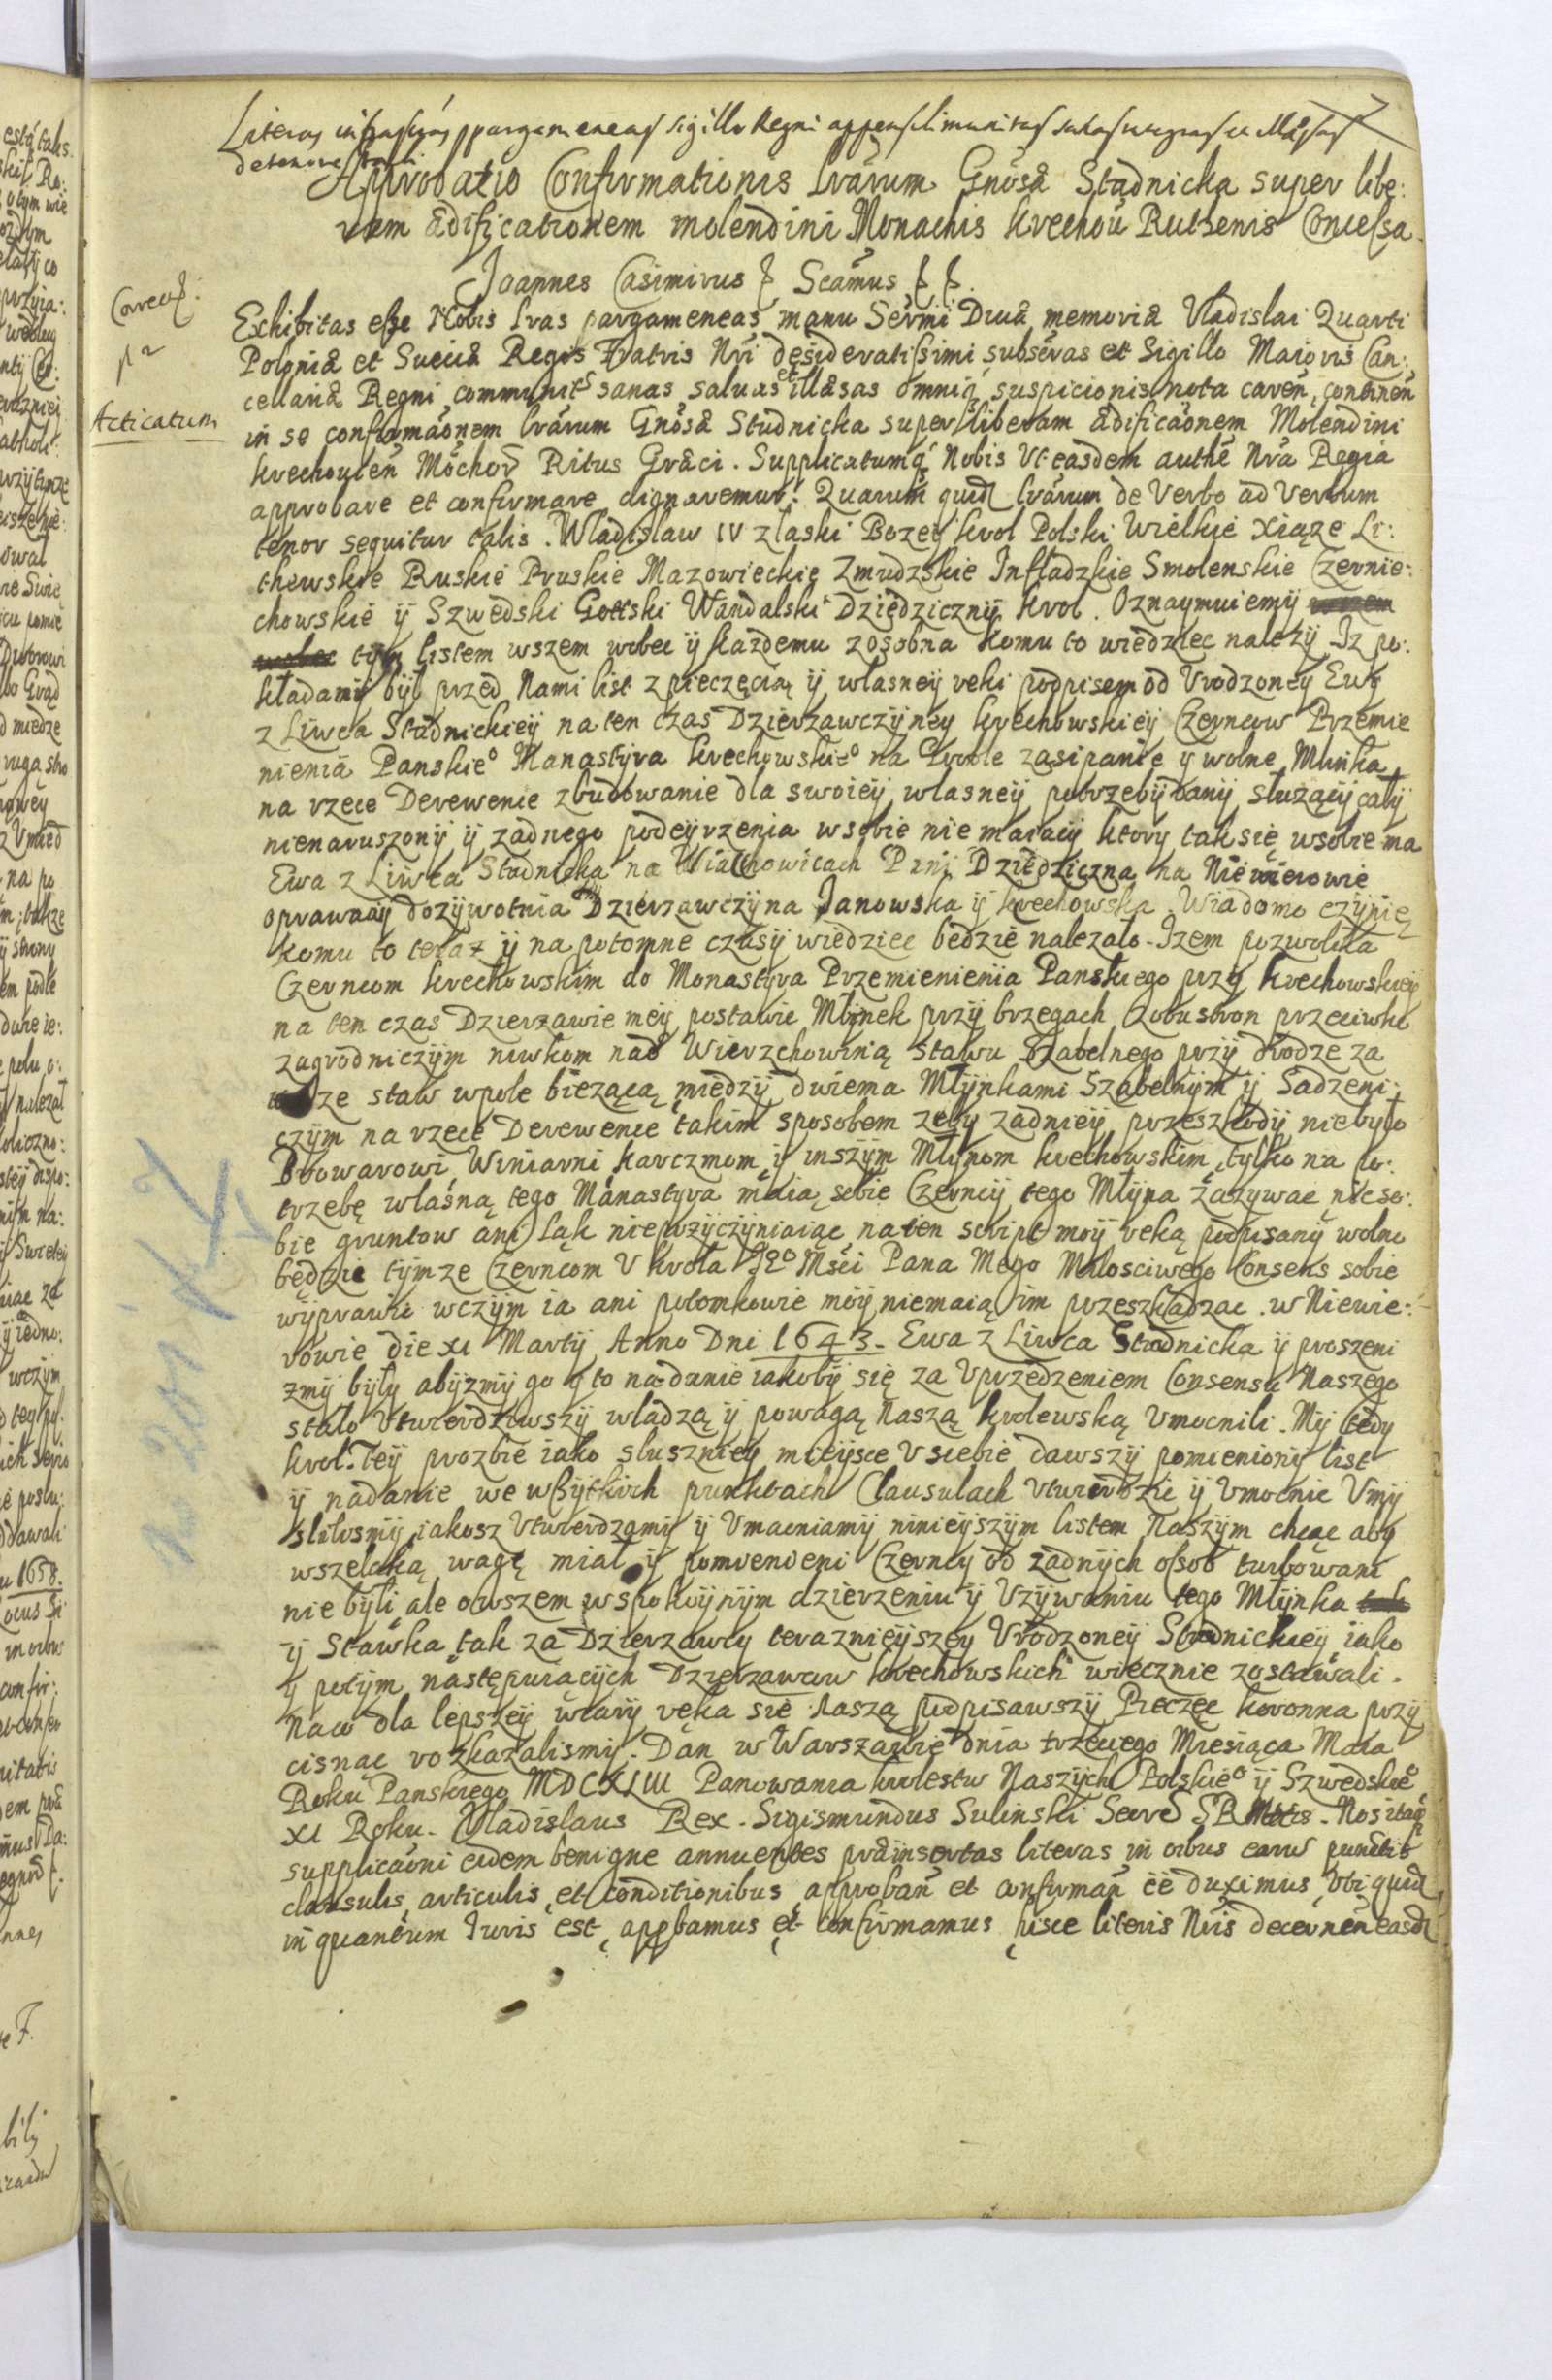 Literas infrascriptas pargameneas sigillo Regni appensili munitas saluas integras et illaesas
de tenore tali
Approbatio Confirmationis lrarum Gnosa Stadnicka super libe:
ram ædificationem molendini Monachis krechou Ruthenis Concessa
Joannes Casimirus
Correct:
Exhibitas esse Nobis lras pargameneas manu Sermi Diuæ memoriæ Vladislai Quarti
Poloniæ et Sueciæ Regis Fratris Nri desideratissimi subscras et Sigillo Maioris Can:
cellariæ Regni communit sanas saluas et illæsas omniq suspicionis nota caren, continen
Acticatum
in se confirmaonem lrarum Gnosæ Studnicka super liberam ædificaonem Molendini
krechouien Mochor Ritus Græci. Supplicatumq Nobis Vt easdem authe Nra Regia
approbare et confirmare dignaremur. Quarum quid lrarum de Verbo ad Verbum
tenor sequitur talis. Wladislaw IV z laski Bozey krol Polski Wielkie Xiąze Li:
thewskie Ruskie Pruskie Mazowieckie Zmudzskie Infladzkie Smolenskie Czernie:
chowskie ÿ Szwedski Gottski Wandalski Dziedzicznÿ krol. Oznaymuiemÿ wszem
wobec tÿm listem wszem wobec ÿ każdemu zosobna komu to wiedziec nalezÿ Iz po:
kładanÿ bÿl przed Nami list z pieczęcią ÿ własneÿ reki podpisem od Vrodzoneÿ Ewÿ
z Liwca Stadnickieÿ na ten czas Dzierzawczÿney krechowskieÿ Czerncow Przemie
nienia Panskieo Manastÿra krechowskieo na Groble zasipanie ÿ wolne Mlinka
na rzece Derewence zbudowanie dla swoieÿ własneÿ potrzebÿ danÿ służącÿ całÿ
nienaruszonÿ ÿ zadnego podeÿrzenia w sobie nie maiacÿ ktorÿ tak się w sobie ma
Ewa z Liwca Stadnicka na Wialchowicach Pani Dziedziczna na Niewierowie
oprawnaÿ dozÿwotnia Dzierzawczÿna Janowska ÿ krechowska. Wiadomo czÿnię
komu to teraz ÿ na potomne czasÿ wiedziec bedzie nalezało. Izem pozwoliła
Czerncom krechowskim do Monastÿra Przemienienia Panskiego przÿ krechowskieÿ
na ten czas Dzierzawie meÿ postawic Młÿnek przÿ brzegach zobustron przeciwko
zagrodniczÿm niwkom nad Wierzchowiną stawu Szabelnego przÿ drodze za
ze staw w pole biezącą międzÿ dwiema Młÿnkami Szabelnÿm ÿ Sadzeni:
czÿm na rzece Derewence takim sposobem zebÿ zadnieÿ przeszkodÿ niebÿło
Browarowi Winiarni karczmom ÿ inszÿm Młÿnom krechowskim, tylko na po:
trzebę własną tego Manastÿra maią sobie Czerncÿ tego Młÿna zazywac nic so:
bie gruntow ani łąk nieprzÿczÿniaiąc na ten script moÿ reką podpisanÿ wolno
będzie tÿmze Czerncom V krola Jeo Msci Pana Mego Milosciwego Consens sobie
wÿprawic wczÿm ia ani potomkowie moÿ niemaią im przeszkadzac. w Niewie:
rowie die XI Martÿ Anno Dni 1643. Ewa z Liwca Stadnicka ÿ proszeni
zmÿ bÿlÿ abÿzmÿ go ÿ to nadanie iakobÿ się za Vprzedzeniem Consensu Naszego
stało Vtwierdziwszÿ władzą ÿ powagą naszą krolewską Vmocnili. Mÿ tedy
krol. Teÿ prozbie iako słuszneÿ mieÿsce V siebie dawszÿ pomienionÿ list
ÿ nadanie we wszÿtkich punktach Clausulach Vtwierdzic ÿ Vmocnic Vmÿ
slilismÿ iakosz Vtwierdzamÿ ÿ Vmacniamÿ ninieÿszÿm listem Naszÿm chcąc abÿ
wszelaką wagę miał ÿ pomienieni Czerncy od żadnÿch osob turbowani
nie bÿli ale owszem w spokoÿnÿm dzierzeniu ÿ Vzÿwaniu tego Młÿnka tak
ÿ Stawka tak za Dzierzawcy terazniejszeÿ Vrodzoneÿ Stadnickieÿ iako
ÿ potÿm następuiącÿch Dzierzawcow krechowskich wiecznie zostawali.
Na co dla lepszeÿ wiarÿ ręka się Naszą podpisawszÿ Pieczęc koronna przÿ
cisnąc rozkazalismÿ. Dan w Warszawie dnia trzeciego Miesiąca Maia
Roku Panskiego MDCXLIII Panowania krolestw Naszÿch Polskieo ÿ Szwedskieo
XI Roku. Vladislaus Rex. Sigismundus Sulinski Secre S R Mttis. Nos itaq
supplicaoni eidem benigne annuentes præinsertas literas in oibus earu punctis
clausulis, articulis, et conditionibus approban et confirman ee duximus, vti quid
in quantum Juris est, appbamus et confirmamus hisce literis Nris decernen easd